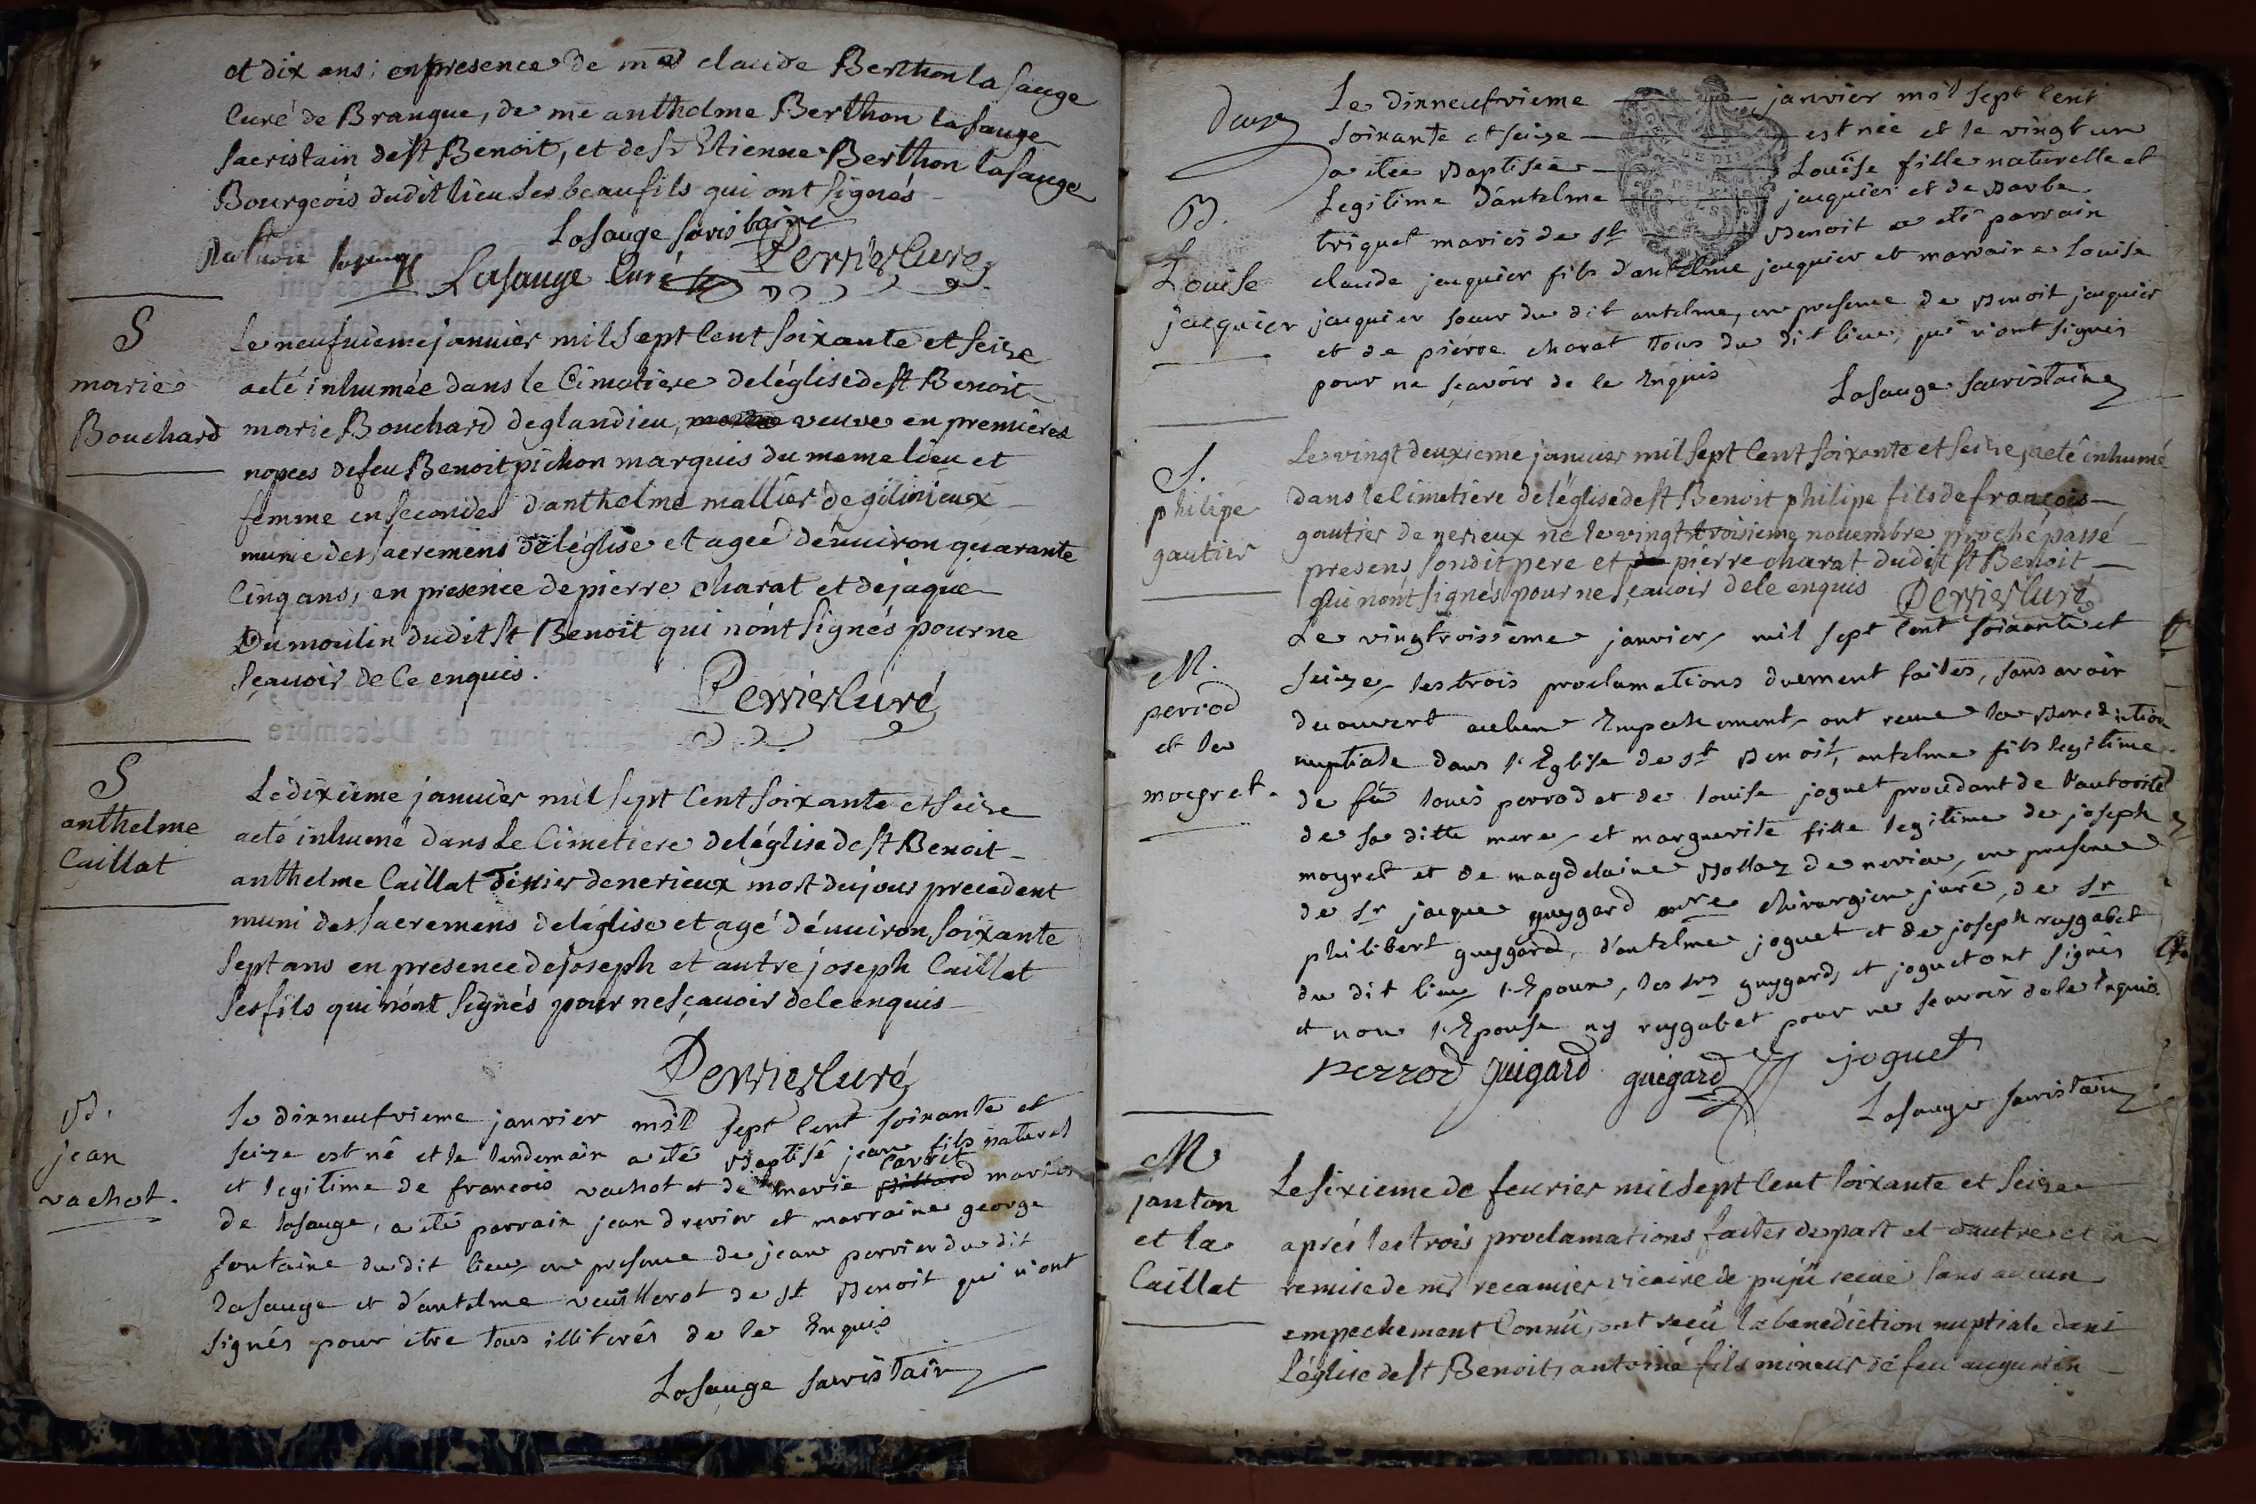 et dix ans; en presence de me claude Berthon la sauge
Curé de Brangue, de me anthelme Berthon lasauge
sacristain de st Benoit, et de sr Etienne Berthon lasauge
Bourgeois dudit lieu ses beaufils qui ont signés
Lasauge sacristaine
Lasauge Curé
Perrier Curé
S
marie
Bouchard
Le neufvieme januier mil sept Cent soixante et seize
a eté inhumée dans le Cimetiere de léglise de st Benoit
marie Bouchard de glandieu, veuve en premieres
nopces de feu Benoit pichon marquis du meme lieu et
femme en secondes d'anthelme mallier de gilinieux
munie des sacremens de léglise et ageé dénuiron quarante
Cinq ans, en presence de pierre charat et de jaque
Dumoulin dudit st Benoit qui nónt signés pour ne
sçauoir de Ce enquis.
Perrier Curé
S
anthelme
Caillat
Le dixieme januier mil sept Cent soixante et seize
a eté inhumé dans Le Cimetiere de léglise de st Benoit
anthelme Caillat de nerieux mort du jour precedent
muni des sacremens de léglise et agé dénuiron soixante
sept ans en presence de joseph et autre joseph Caillat
ses fils qui nónt signés pour ne sçauoir de le enquis
Perrier Curé
B.
jean
vachot.
Le dixneufvieme janvier mil sept Cent soixante et
seize est né et le lendemain a eté Baptisé jean fils naturel
et legitime de francois vachot et de marie mariés
de lasauge, a eté parrain jean drevier et marraine george
fontaine du dit lieu, en presence de jean perrier du dit
lasauge et d'antelme veuillerot de st Benoit qui n'ont
signés pour etre tous illiterés de le Enquis
Lasauge sacristain
Le dixneufvieme janvier mil sept Cent
soixante et seize est née et le vingt un
a etée Baptisée Louïse fille naturelle et
Legitime d'antelme jacquier et de Barbe
triquet mariés de st Benoit a eté parrain
claude jacquier fils d'antelme jacquier et marraine Louise
jacquier soeur du dit antelme, en presence de Benoit jacquier
et de pierre charat tous du dit lieu, qui n'ont signés
pour ne sçavoir de le Enquis
Lasauge sacristaine
B.
Louïse
jacquier
S.
philipe
gautier
Le vingt deuxieme januier mil sept Cent soixante et seize a eté inhumé
dans le Cimetiere de léglise de st Benoit philipe fils de françois
gautier de nerieux né le vingt troisieme nouembre proche passé
presens sondit pere et pierre charat dudit st Benoit
qui nónt signés pour ne sçauoir de le enquis Perrier Curé
M.
perrod
et la
moegret.
Le vingtroisieme janvier mil sept Cent soixante et
seize, les trois proclamations duement faites, sans avoir
decouvert aucun Empechement, ont receu la Benediction
nuptiale dans l'Eglise de st Benoit, antelme fils legitime
de feu louis perrod et de louise joguet procedant de l'autorité
de sa ditte mere, et marguerite fille legitime de joseph
moyret et de magdelaine Bollaz de nerieu, en presence
de sr jacque guygard chirurgien juré, de sr
philibert guygard, d'antelme joguet et de joseph ruygabet
du dit lieu, l'Epoux, les srs guygard, et joguet ont signés
et non l'Epouse ny ruygabet pour ne sçavoir de le Enquis.
perrod guigard guigard joguet
Lasauge sacristain
M
janton
et la
Caillat
Le sixieme de feurier mil sept Cent soixante et seize
aprés les trois proclamations faites de part et d'autre et la
remise de mr recamier vicaire de sans aucun
empechement Connû, ont reçu la benediction nuptiale dans
l'église de st Benoit, antoine fils mineur de feu augustin